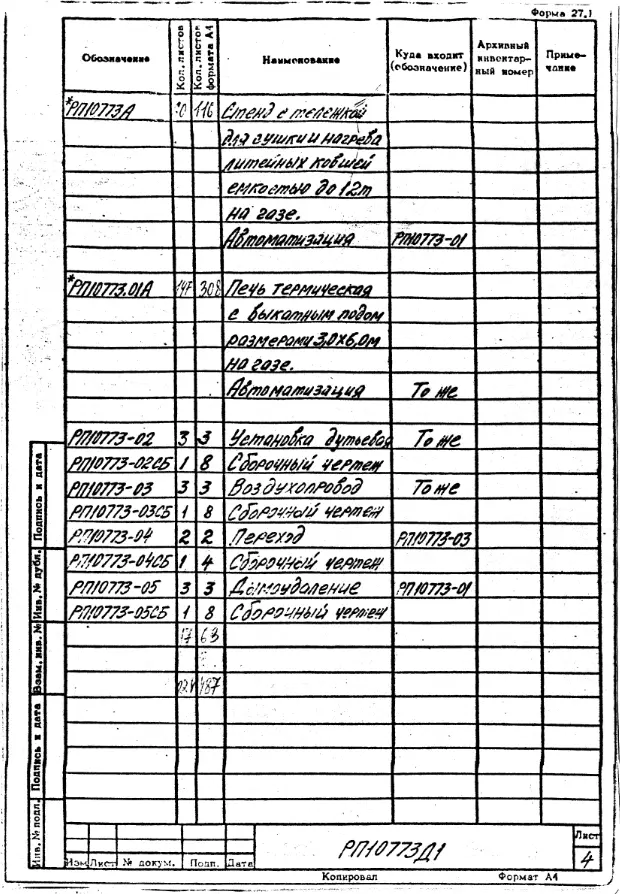 Форма 27.1
Обозначение Кол. листов Кол. листов формата А4 Наименование Куда входит (обозначение) Архивный инвентарный номер Примечание
*РП10773А 116 Стенд с тележкой
для сушки и нагрева
литейных ковшей
емкостью до 12т
на газе.
Автоматизация РП10773-01
*РП10773.01А 147 308 Печь термическая
с выкатным подом
размерами 3,0х6,0м
на газе.
Автоматизация То же
РП10773-02 3 3 Установка дутьевая То же
РП10773-02СБ 1 8 Сборочный чертеж
РП10773-03 3 3 Воздухопровод То же
РП10773-03СБ 1 8 Сборочный чертеж
РП10773-04 2 2 Переход РП10773-03
РП10773-04СБ 1 4 Сборочный чертеж
РП10773-05 3 3 Дымоудаление РП10773-01
РП10773-05СБ 1 8 Сборочный чертеж
17 63
487
Инв. № подл. Подпись и дата Взам. инв. № Инв. № дубл. Подпись и дата
Изм Лист № докум. Подп. Дата
РП10773Д1
Лист
4
Копировал Формат А4